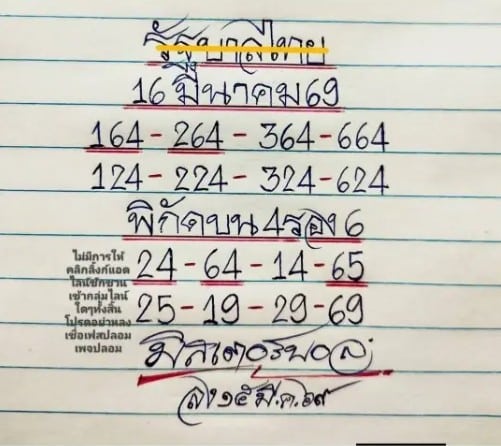 รัฐบาลไทย
16 มีนาคม 69
164 - 264 - 364 - 664
124 - 224 - 324 - 624
พิกัดบน 4 รอง 6
24 - 64 - 14 - 65
25 - 19 - 29 - 69
ไม่มีการให้
คลิกลิ้งก์แอด
ไลน์ชักชวน
เข้ากลุ่มไลน์
ใดๆทั้งสิ้น
โปรดอย่าหลง
เชื่อเฟสปลอม
เพจปลอม
มิสเตอร์บอล
ลง ๑๕ มี.ค. ๖๙